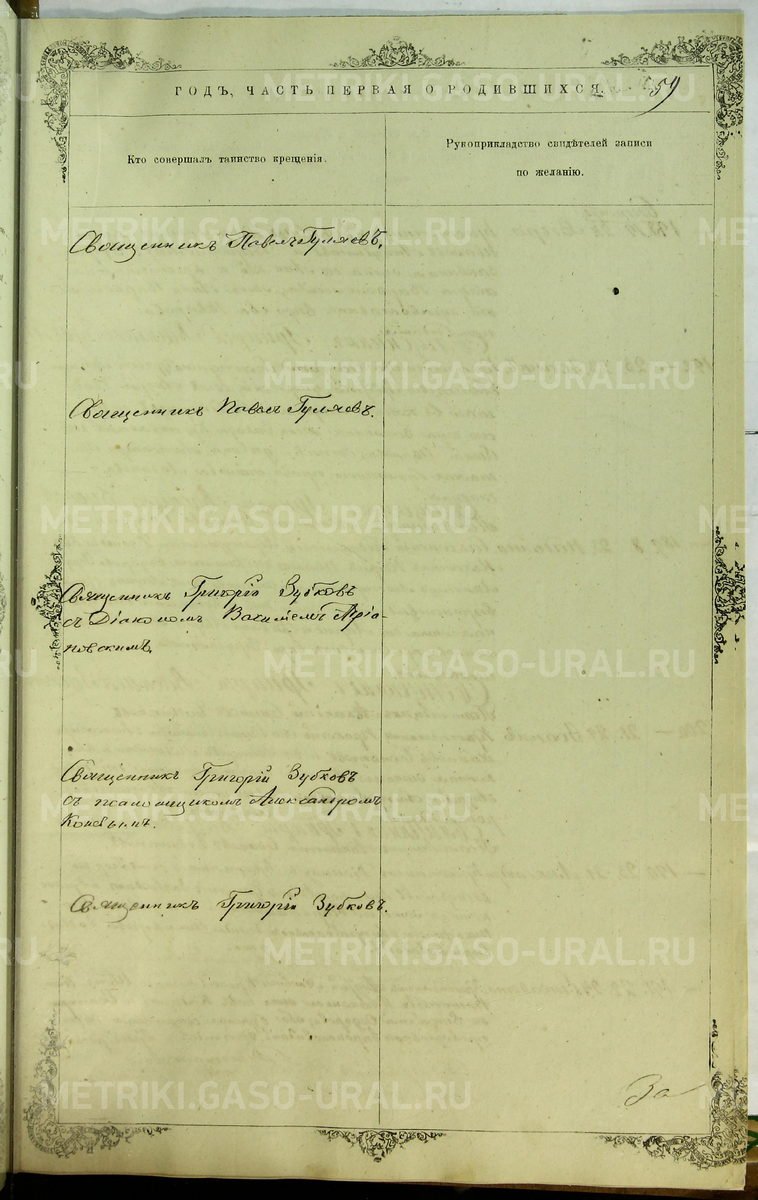 ГОДЪ, ЧАСТЬ ПЕРВАЯ О РОДИВШИХСЯ.
59
Кто совершалъ таинство крещенія.
Рукоприкладство свидѣтелей записи
по желанію.
Священникъ Павелъ Гуляевъ.
Священникъ Павелъ Гуляевъ.
Священникъ Григорій Зубковъ
съ Діакономъ
Священникъ Григорій Зубковъ
съ псаломщикомъ Александромъ
Священникъ Григорій Зубковъ.
За
METRIKI.GASO-URAL.RU